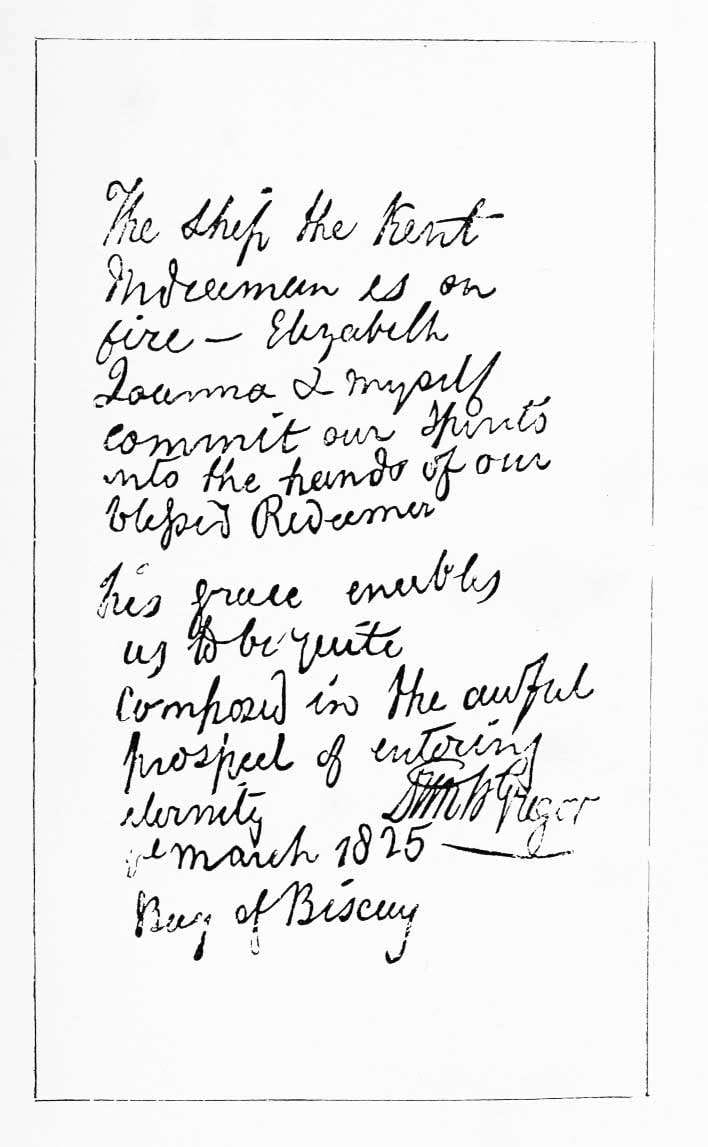 The Ship the Kent
Indiaman is on
fire — Elizabeth
Joanna & myself
commit our spirits
into the hands of our
blessed Redeemer
his grace enables
us to be quite
composed in the awful
prospect of entering
eternity D McGregor
March 1825 —
Bay of Biscay